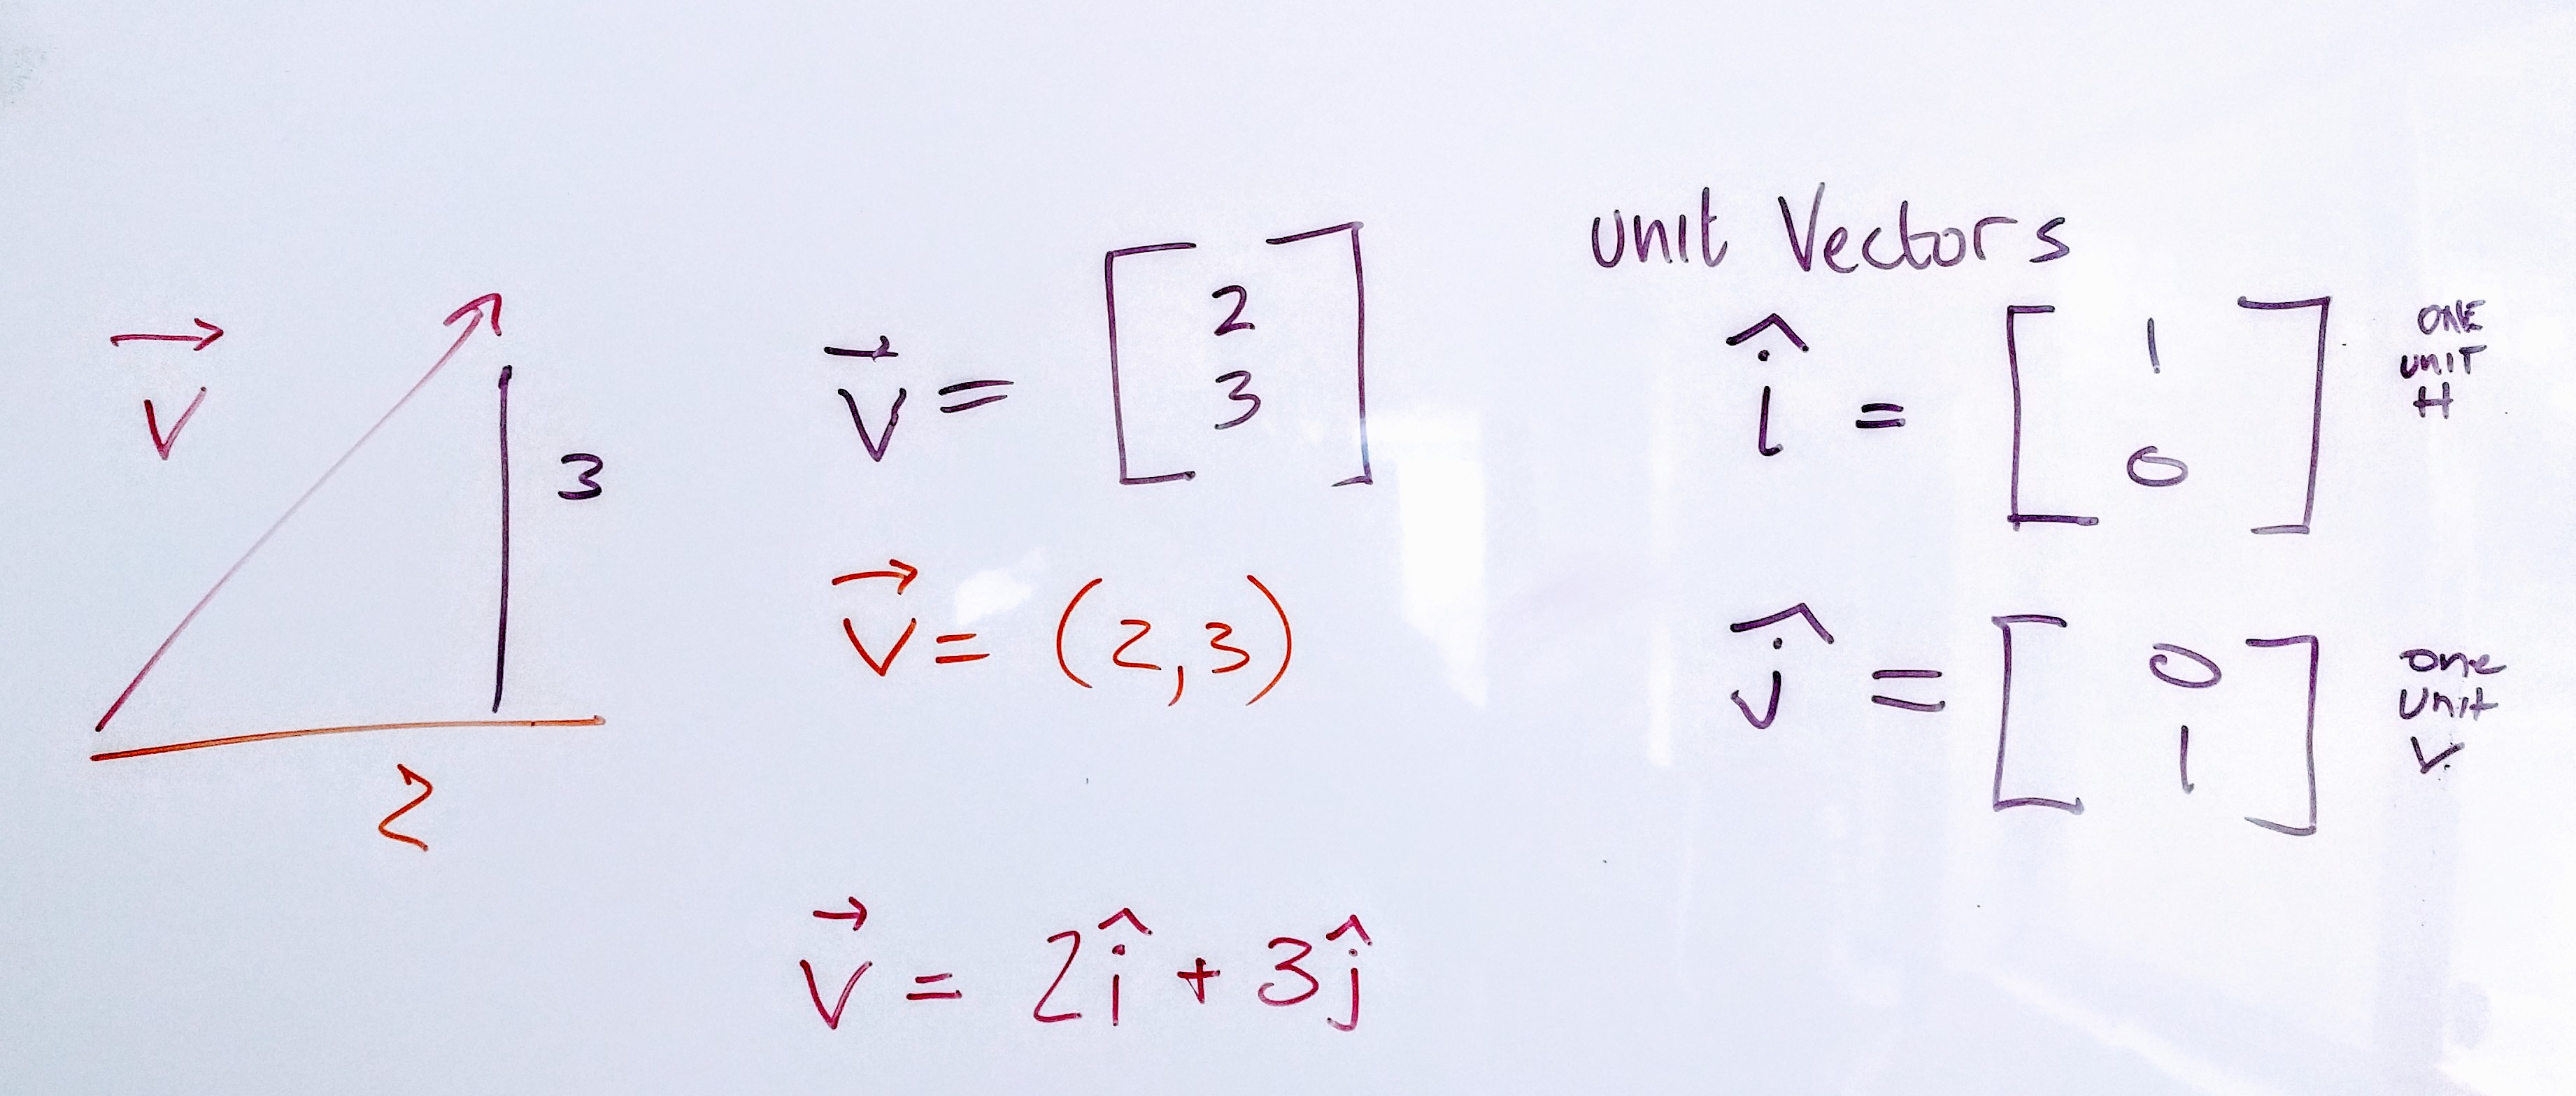 →
V
3
2
→
V = [ 2
3 ]
→
V = (2,3)
→
V = 2î + 3ĵ
unit Vectors
î = [ 1
0 ]
ONE
unit
H
ĵ = [ 0
1 ]
one
unit
V